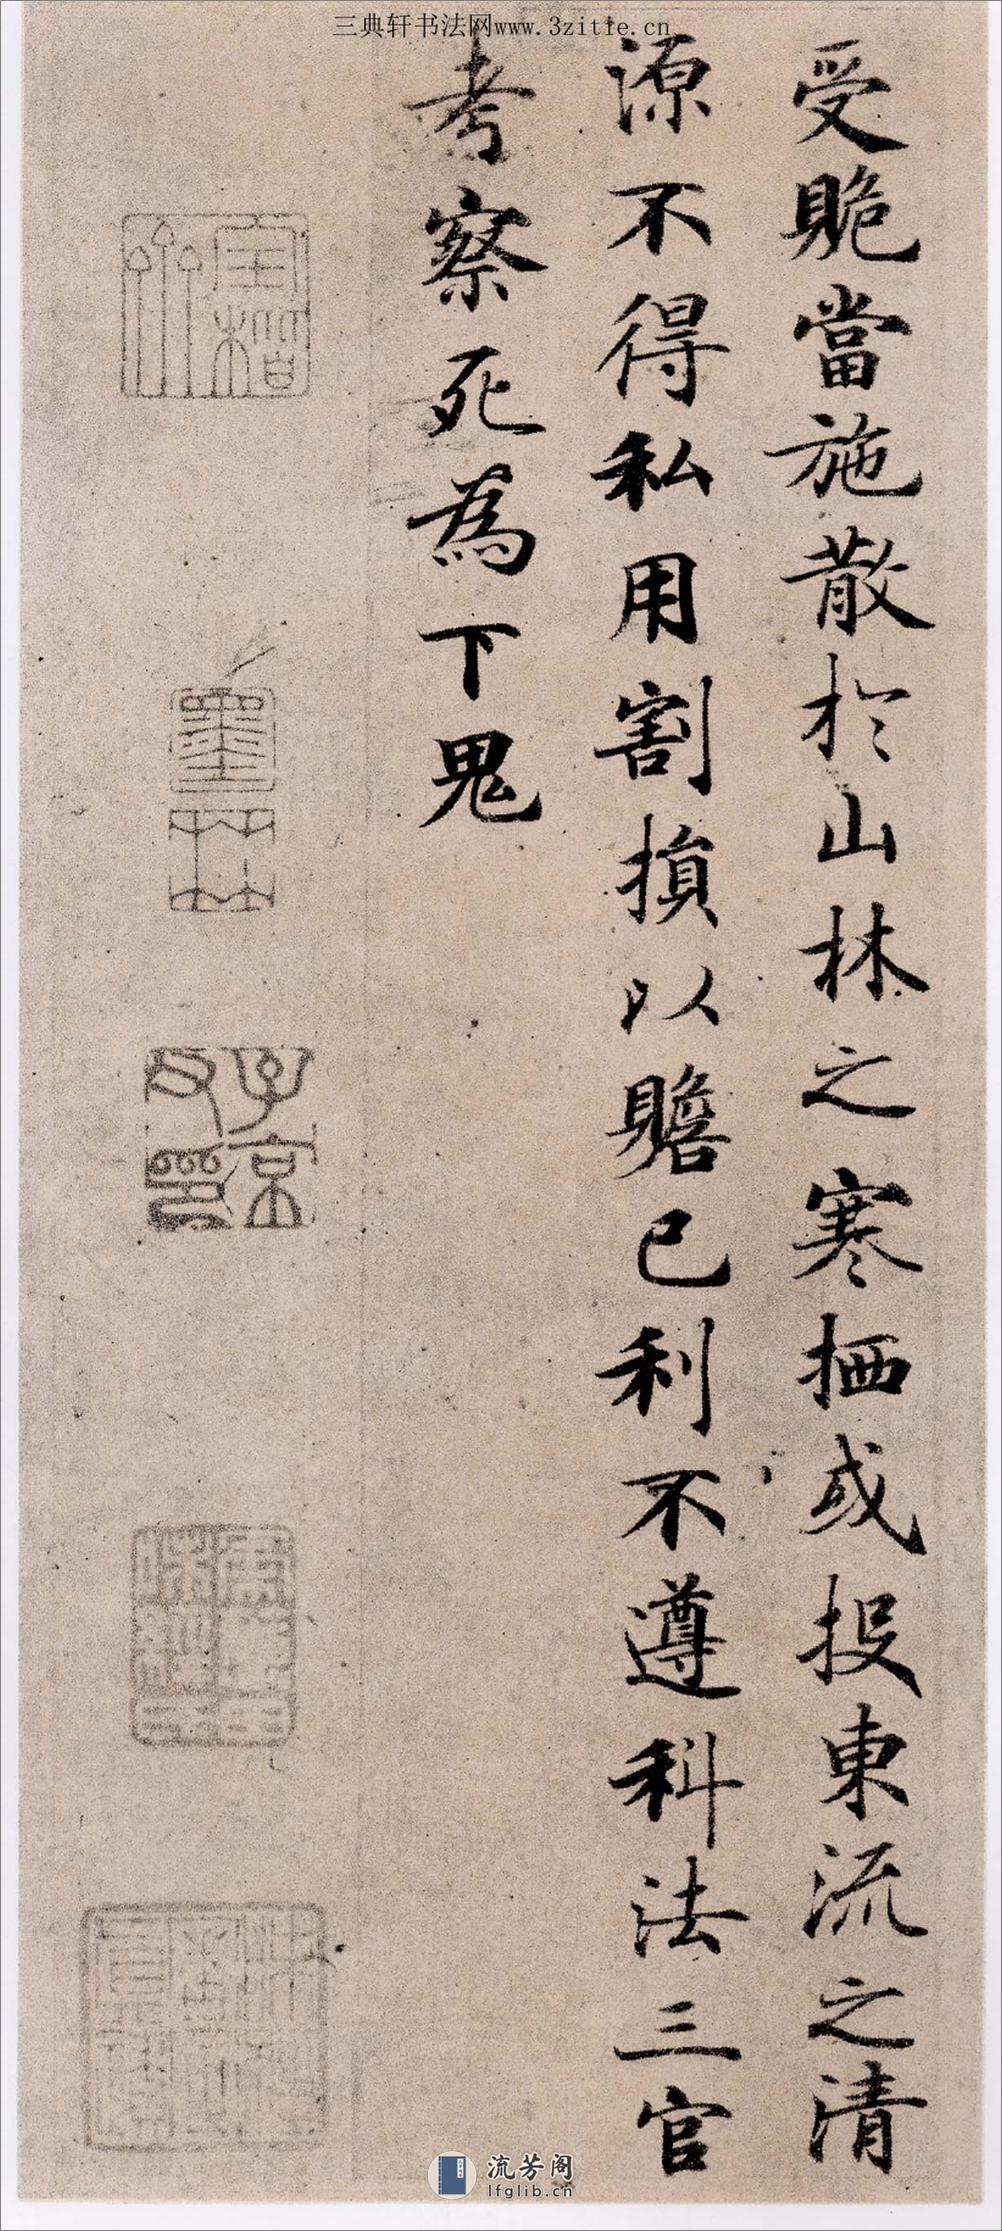 三典轩书法网www.3zitie.cn
受賍當施散於山林之寒栖或投東流之清
源不得私用割損以贍己利不遵科法三官
考察死為下鬼
墨林
子京父印
流芳阁
lfglib.cn